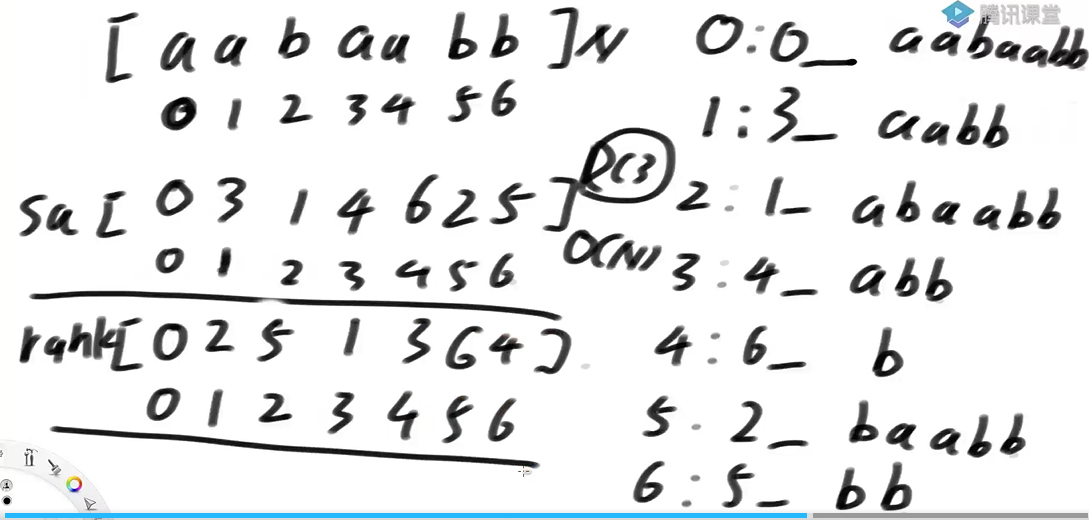 腾讯课堂
[ a a b a a b b ] N
0 1 2 3 4 5 6
sa [ 0 3 1 4 6 2 5 ]
0 1 2 3 4 5 6
DC3
O(N)
rank[ 0 2 5 1 3 6 4 ]
0 1 2 3 4 5 6
0:0_ aabaabb
1:3_ aabb
2:1_ abaabb
3:4_ abb
4:6_ b
5:2_ baabb
6:5_ bb